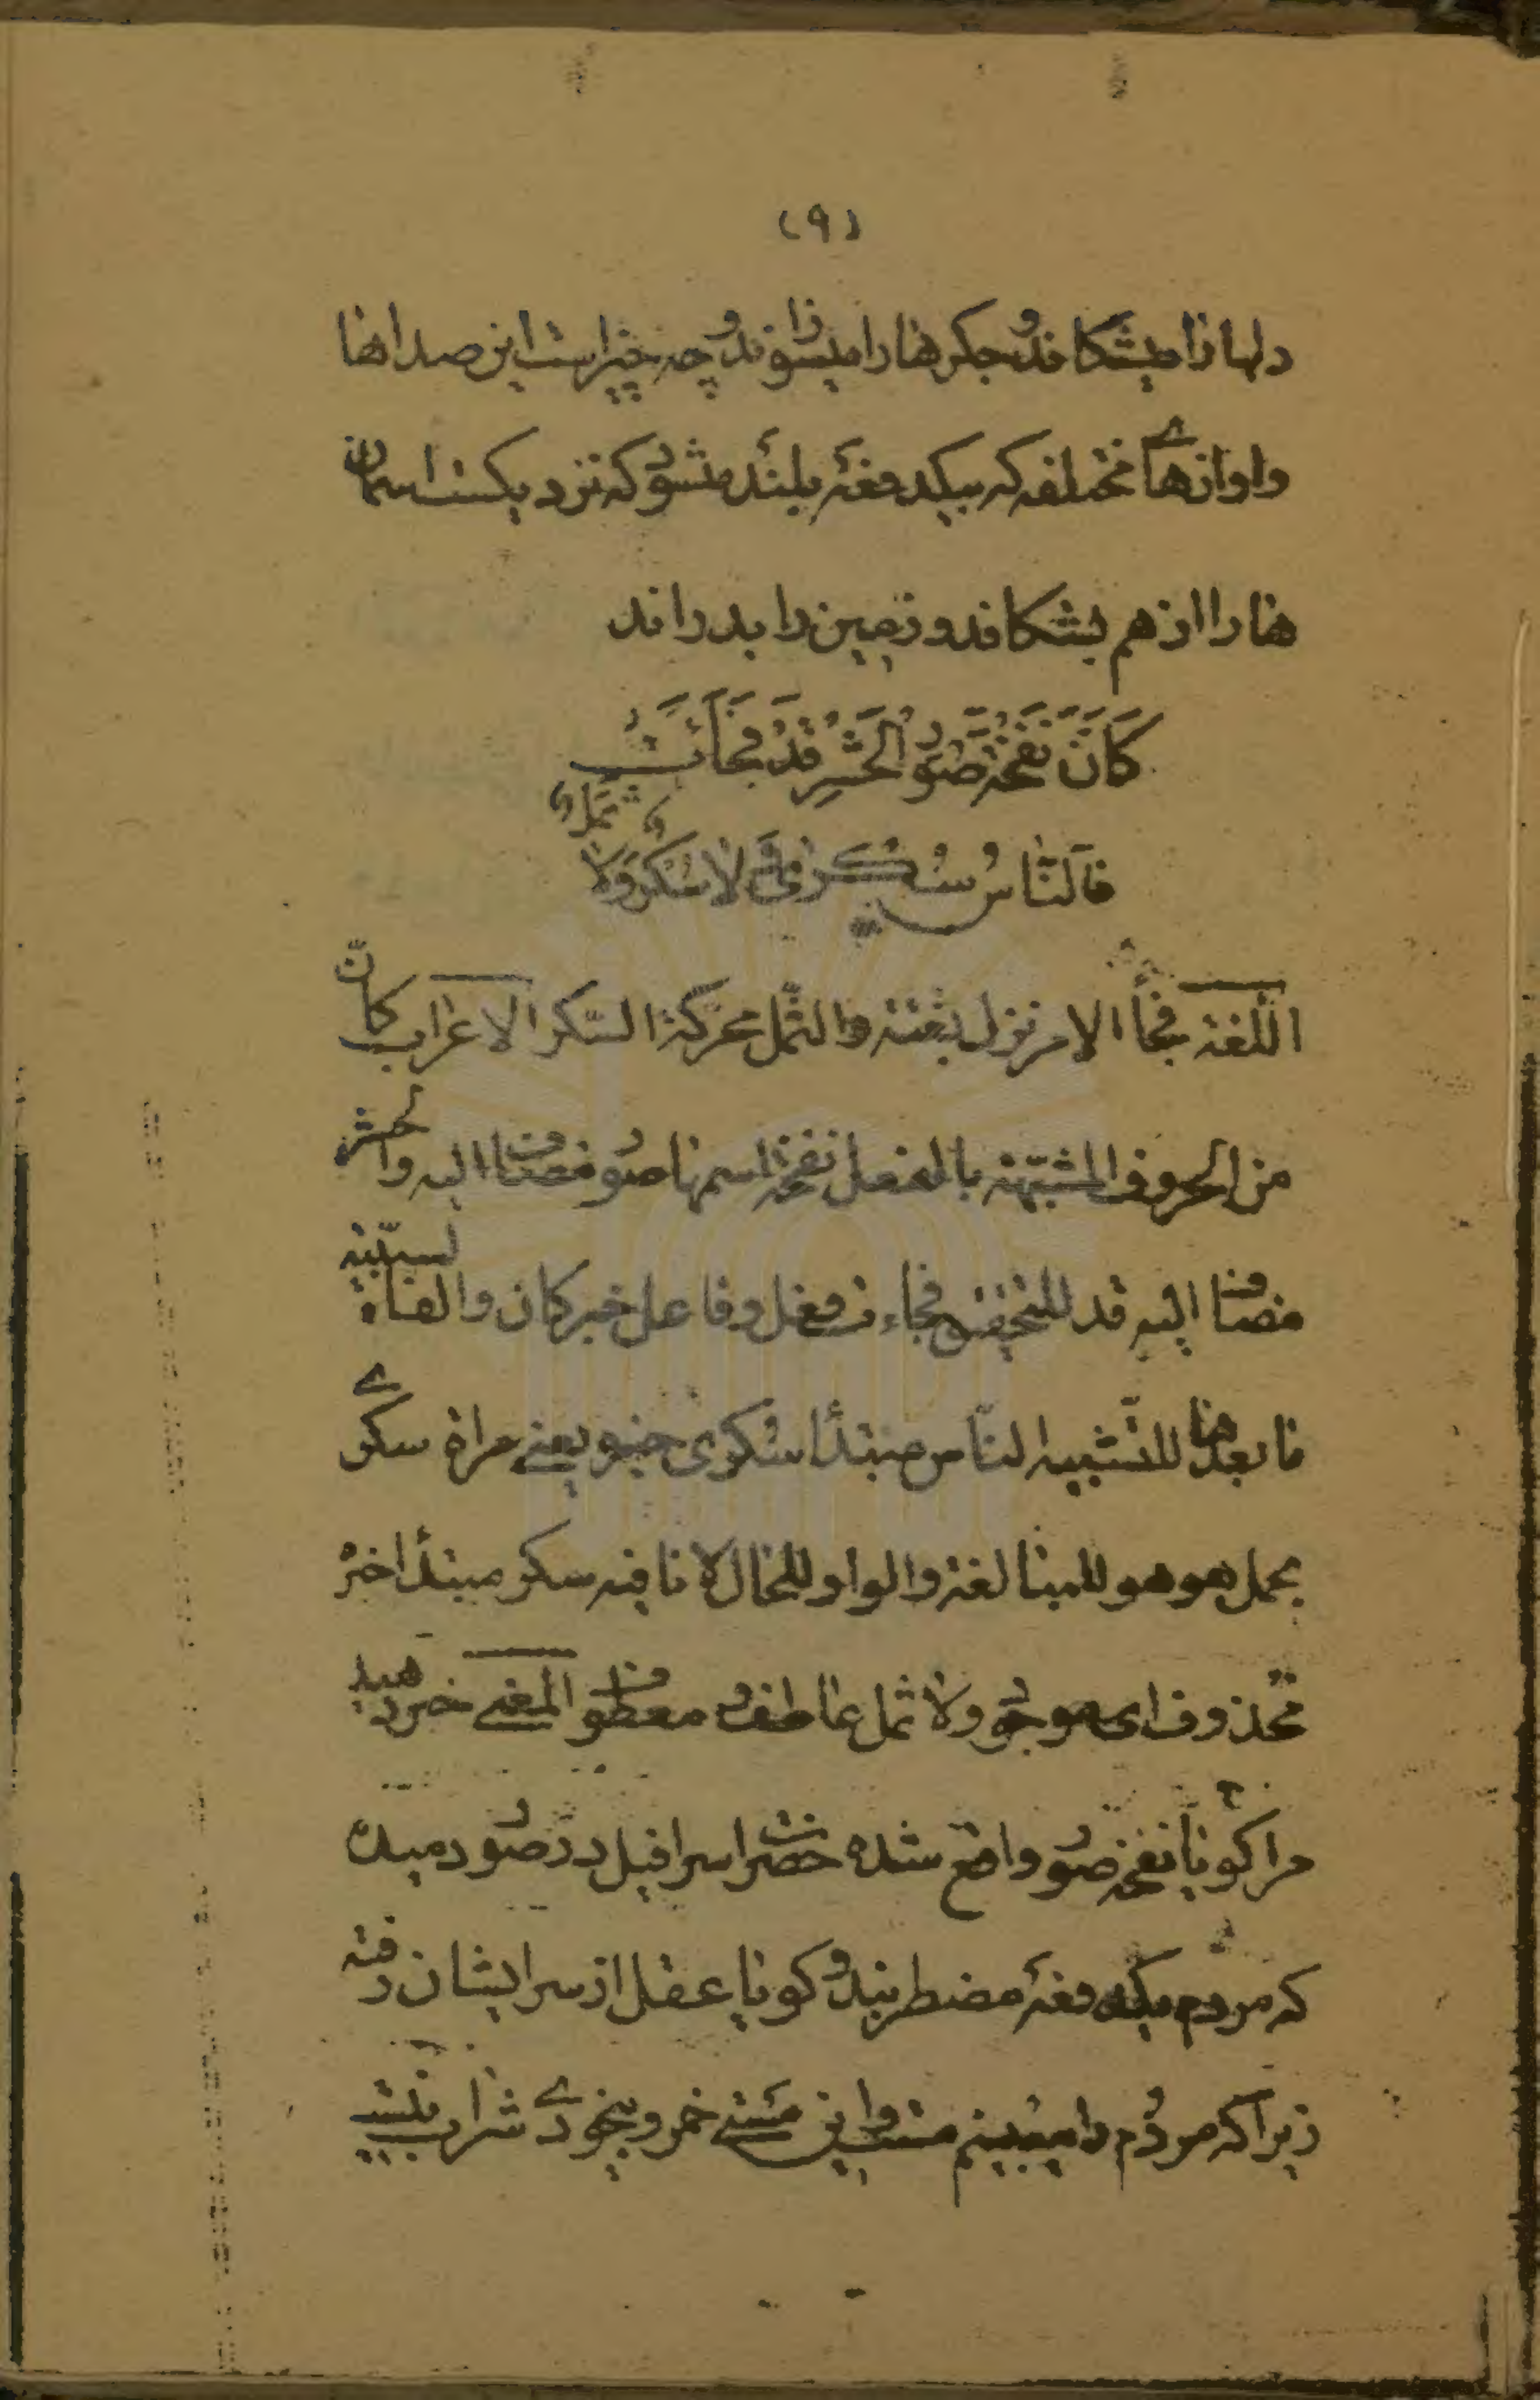 (٩)
دلها را میشکافد و جکرها را میسوزاند و چه چیز است این صداها
و اوازهاے مختلفه که بیکدفعهٔ بلند میشود که نزدیکست اسمان
ها را از هم بشکافد و زمین را بدراند
كَاَنَّ نَفْخَةَ صُوْرِ الْحَشْرِ قَدْ فَجَأَتْ
فَالنَّاسُ سُكْرىٰ وَ لَا سُكْرٌ وَلَا ثَمَلٌ
اللّغة فجأ الامر نزل بغتة والثّمل محرّكة السّكر الاعراب كانّ
من الحروف المشبّهة بالفعل نفخة اسمها صور مضاف اليه والحشر
مضاف اليه قد للتحقيق فجاءت فعل وفاعل خبر كان والفاء لسببيّة
ما بعدها للتّشبيه النّاس مبتدأ سكرى خبر يعنے مراة سكرے
بحمل هو هو للمبالغة والواو للحال لا نافيه سكر مبتدأ خبرُ
محذوف اى موجود ولا ثمل عاطف و معطوف المعنے خبر دهید
مرا كویا نفخه صور واقع شده حضرت اسرافیل در صور دمیده
که مردم بیکدفعهٔ مضطربند و کویا عقل از سر ایشان رفته
زیرا که مردُم را میبینم مست و این مستے خمر و بیخودے شراب نیست